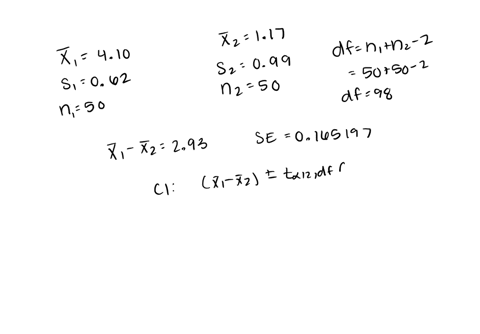 x̄₁ = 4.10
s₁ = 0.62
n₁ = 50
x̄₂ = 1.17
s₂ = 0.99
n₂ = 50
df = n₁+n₂-2
= 50+50-2
df = 98
x̄₁ - x̄₂ = 2.93 SE = 0.165197
CI: (x̄₁-x̄₂) ± tα/2,df (